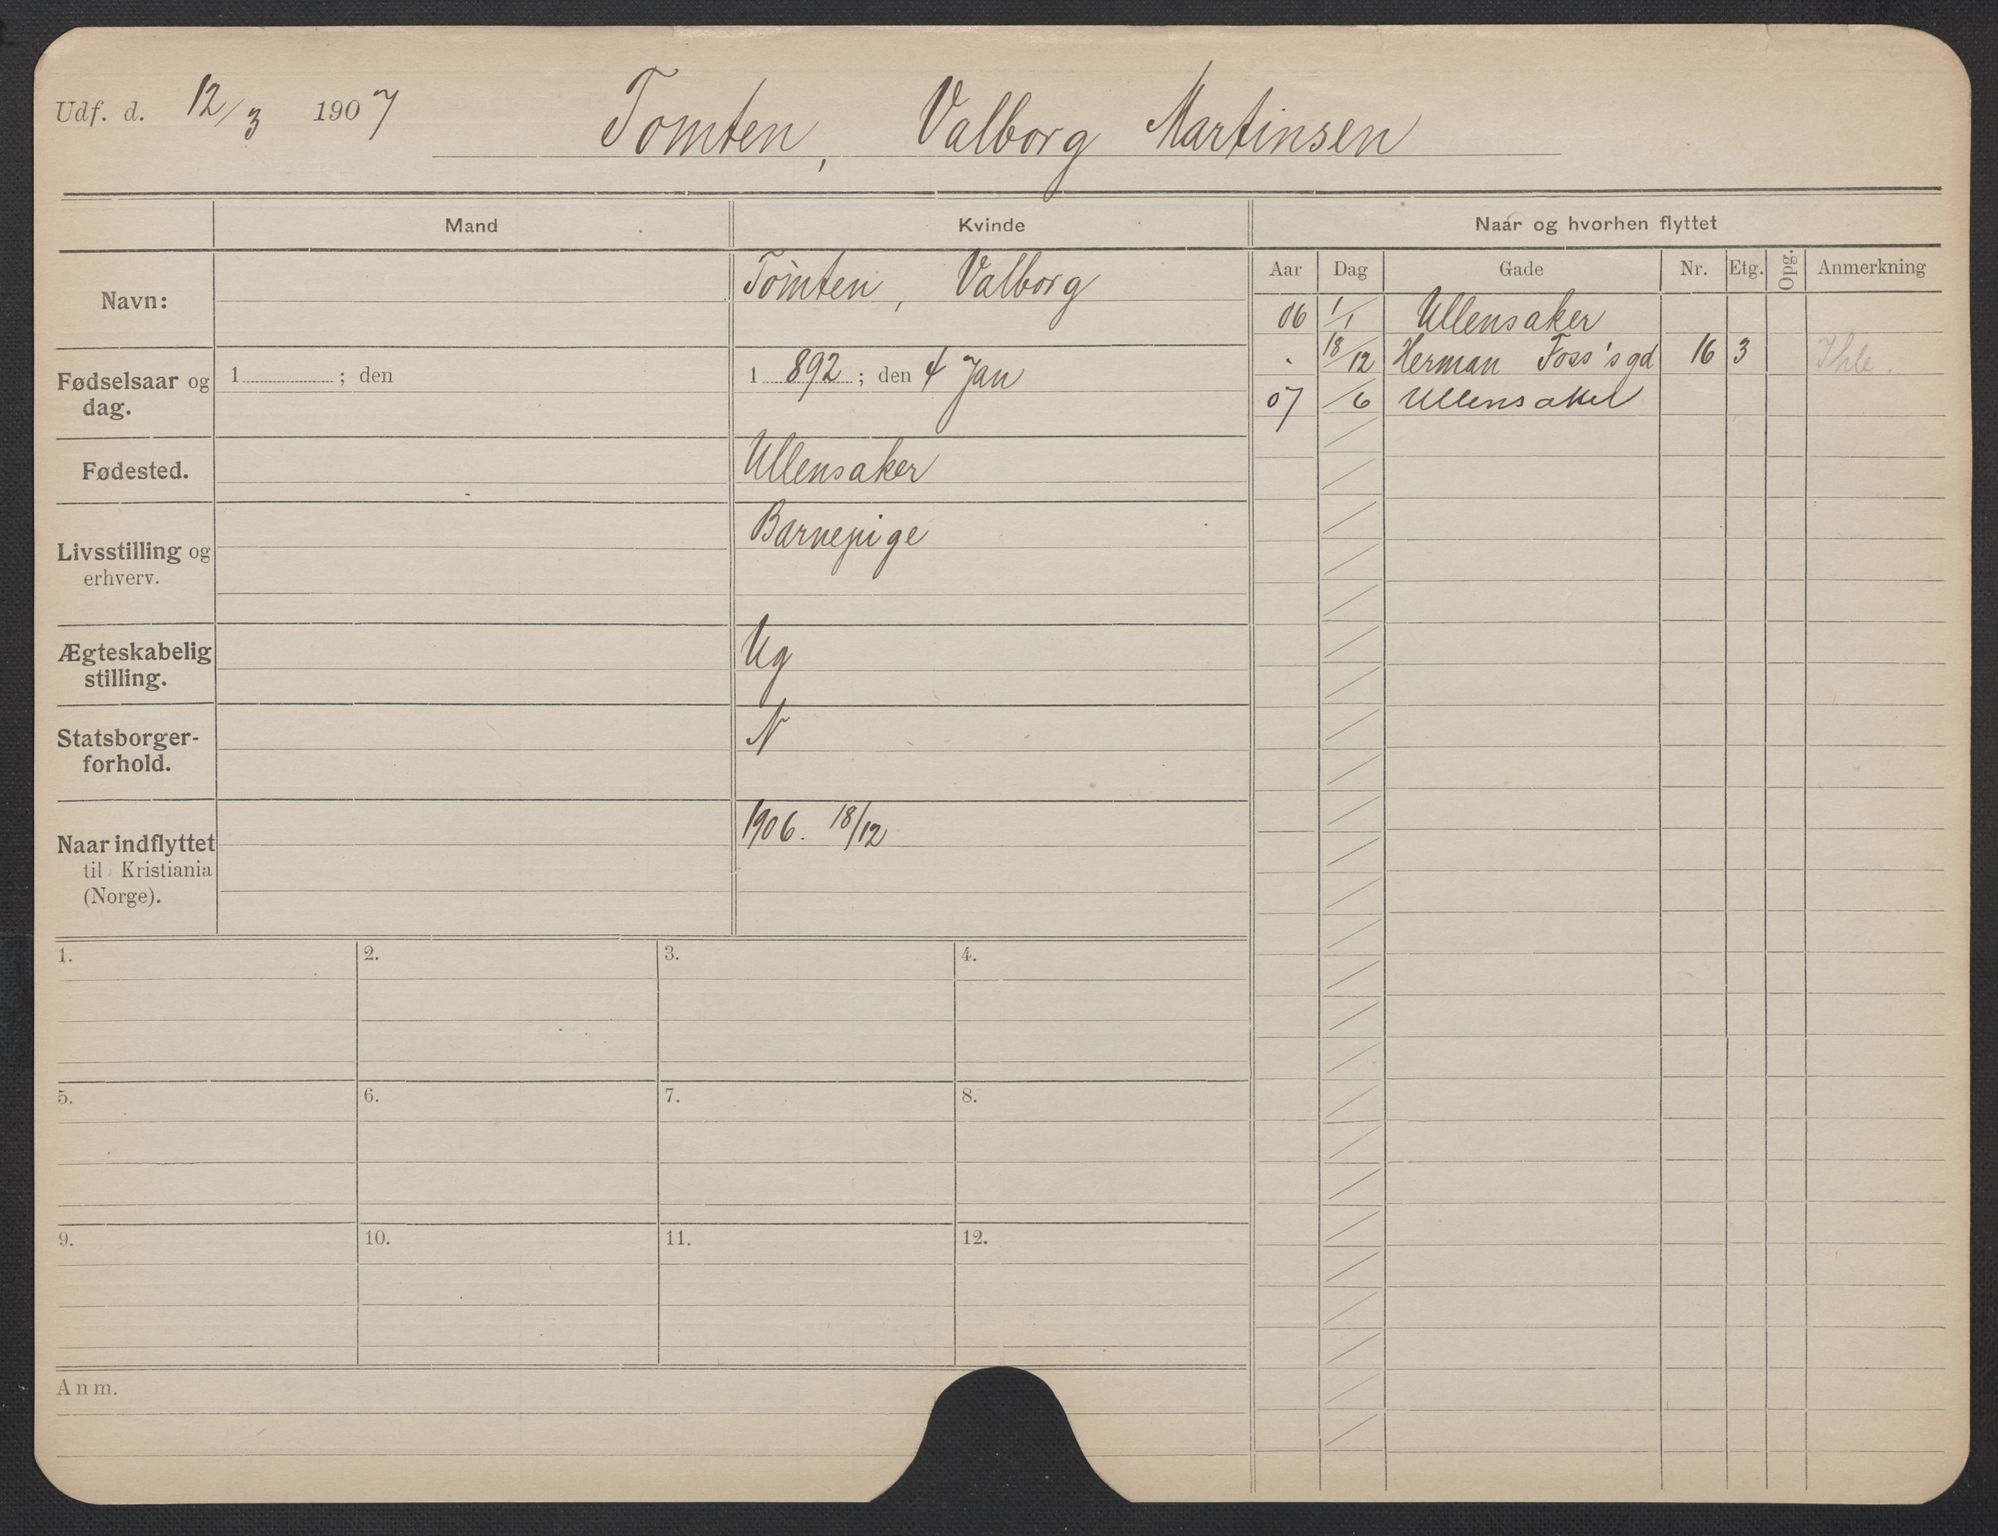 Udf. d. 12/3 1907 Tomten, Valborg Martinsen
Mand Kvinde Naar og hvorhen flyttet
Navn: Tomten, Valborg
Fødselsaar og dag. 1 ; den 1892 ; den 4 Jan
Fødested. Ullensaker
Livsstilling og erhverv. Barnepige
Ægteskabelig stilling. Ug
Statsborger-
forhold. N
Naar indflyttet til Kristiania (Norge). 1906. 18/12
Aar Dag Gade Nr. Etg. Opg. Anmerkning
06 1/1 Ullensaker
. 18/12 Herman Foss'sgd 16 3 Ihle.
07 /6 Ullensaker
1. 2. 3. 4.
5. 6. 7. 8.
9. 10. 11. 12.
Anm.